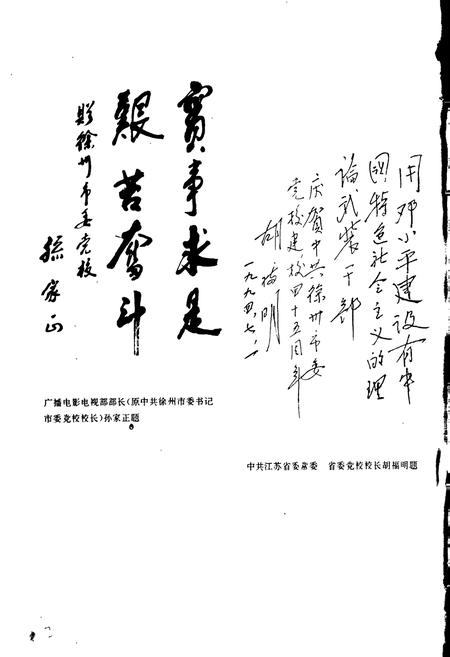 實事求是
艱苦奮斗
贈徐州市委党校
孙家正
广播电影电视部部长(原中共徐州市委书记
市委党校校长)孙家正题
用邓小平建设有中
國特色社会主义的理
论武装干部
庆賀中共徐州市委
党校建校四十五周年
胡福明
一九九四.七.一
中共江苏省委常委 省委党校校长胡福明题